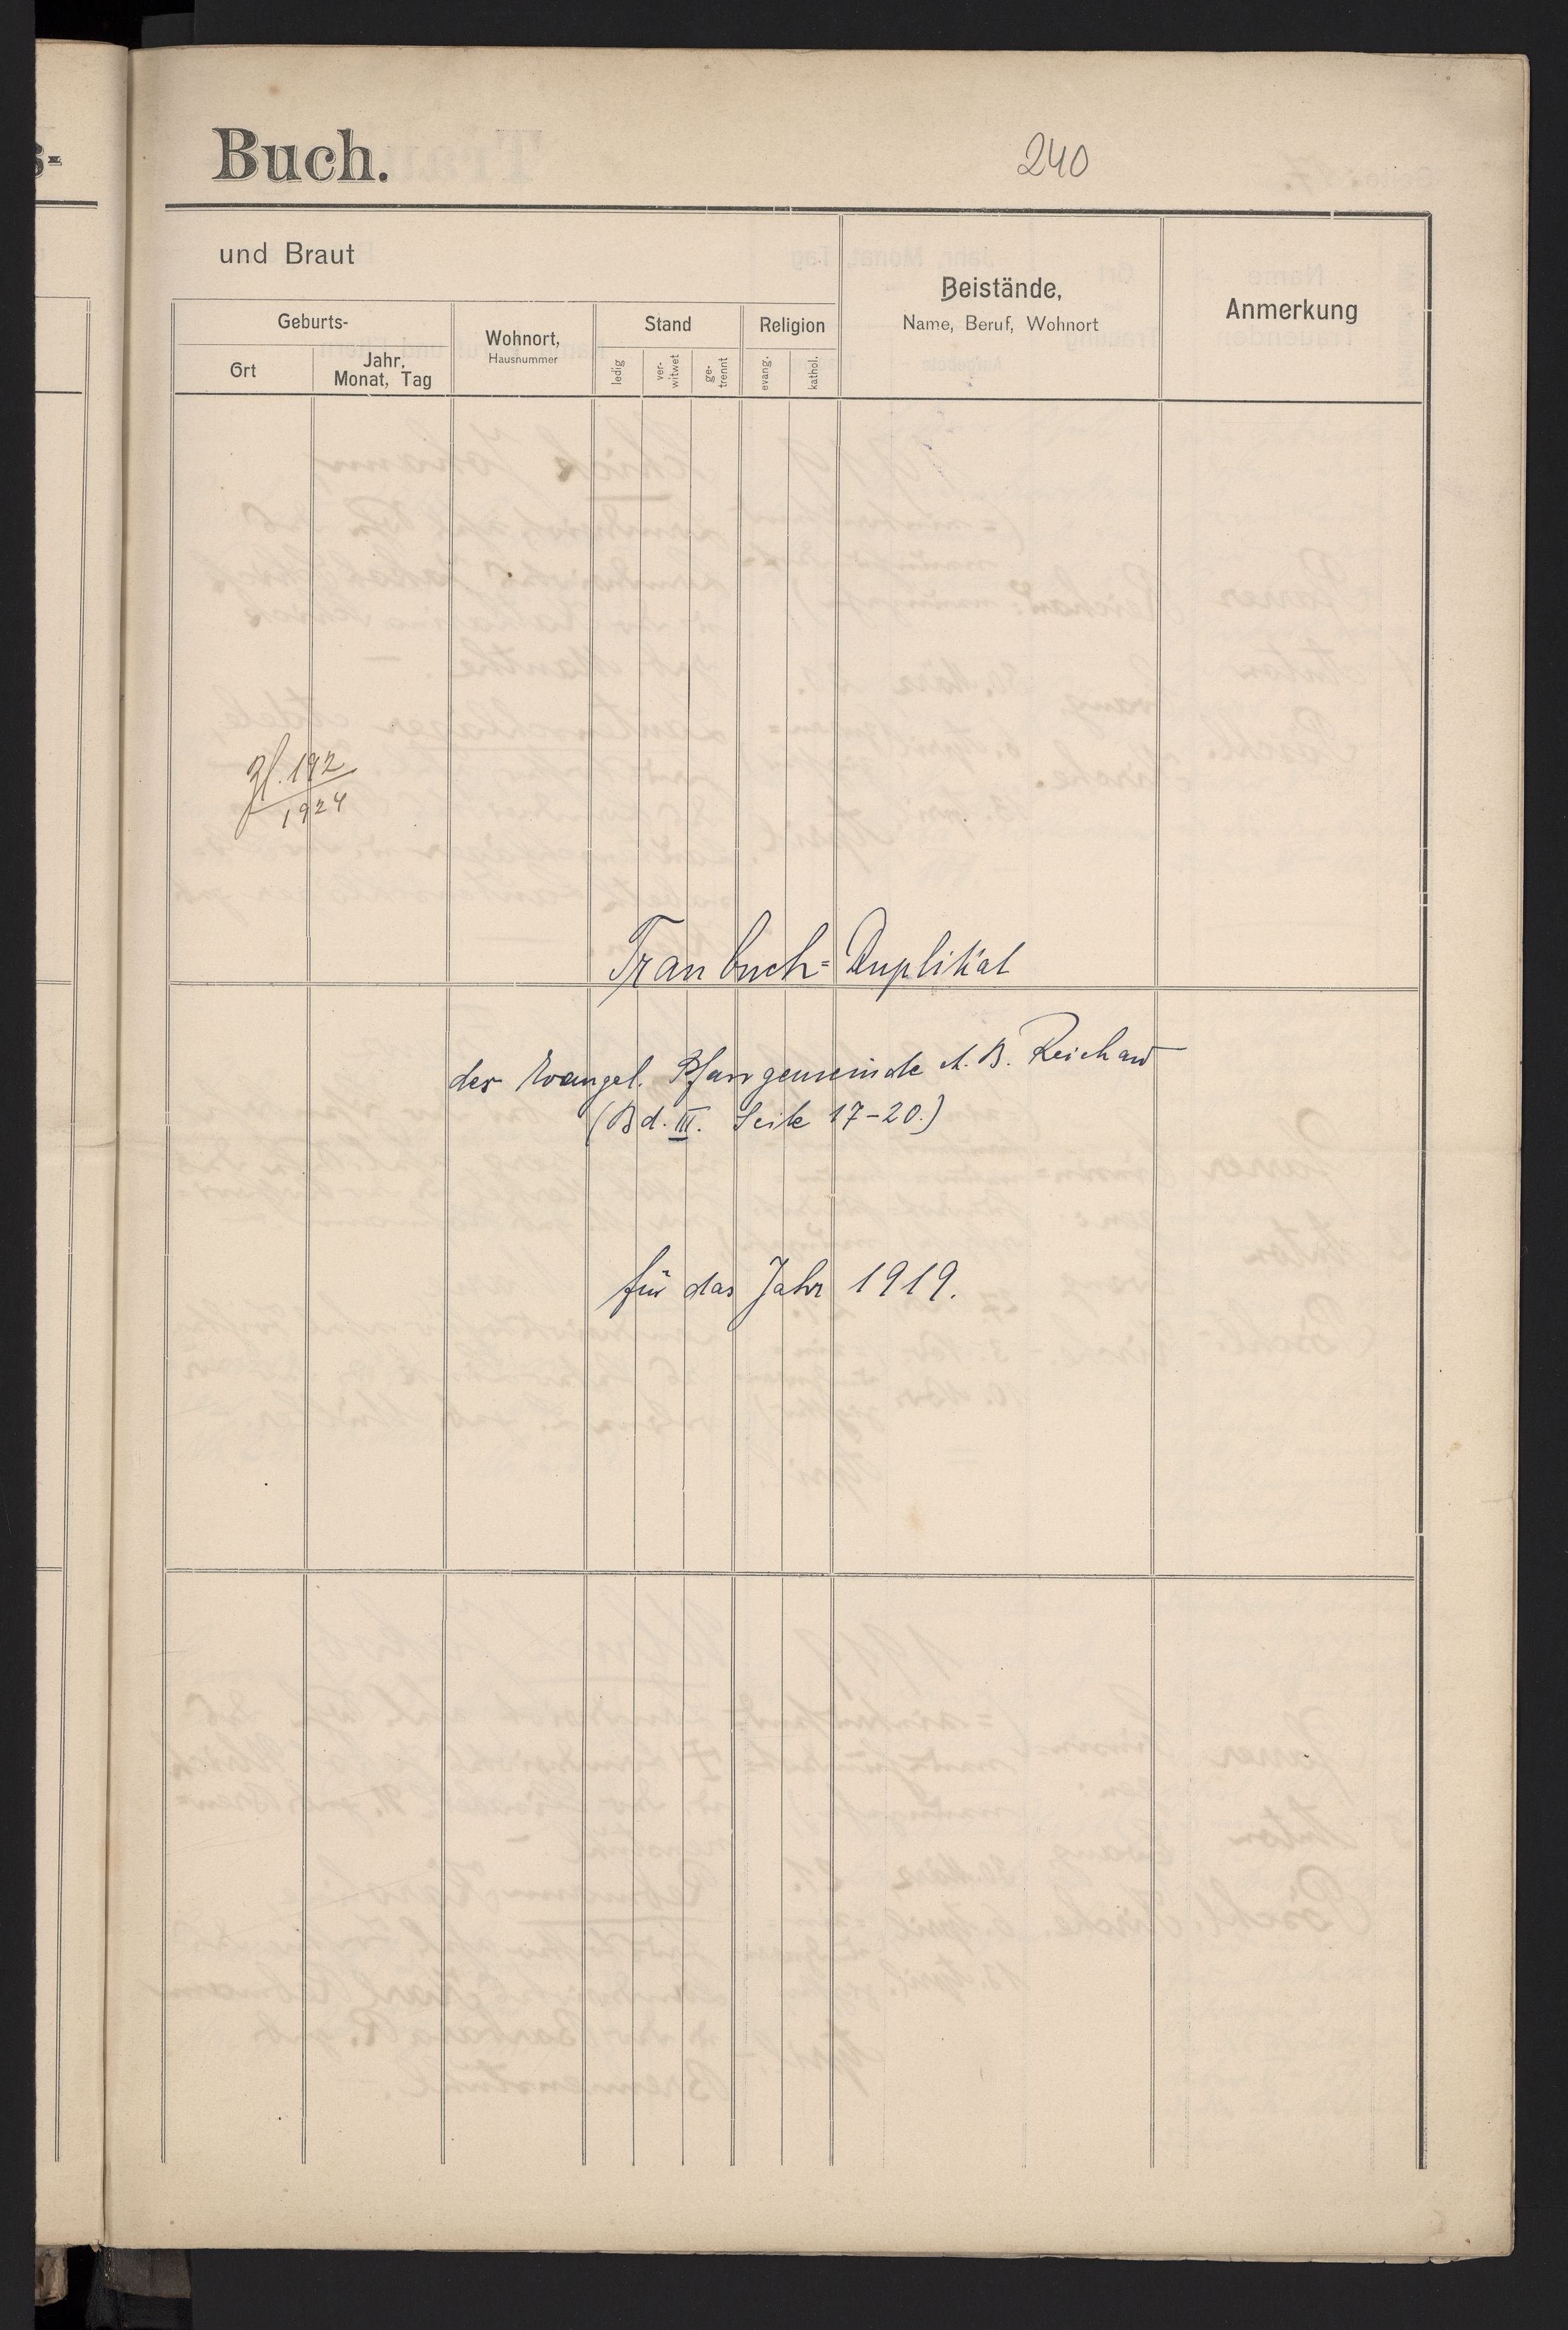 Buch.
240
und Braut
Geburts-
Ort
Jahr, Monat, Tag
Wohnort,
Hausnummer
Stand
ledig
ver-
witwet
ge-
trennt
Religion
evang.
kathol.
Beistände,
Name, Beruf, Wohnort
Anmerkung
Zl. 192
1924
Traubuch=Duplikat
der Evangel. Pfarrgemeinde A. B. Reichau
(Bd. III. Seite 17-20.)
für das Jahr 1919.